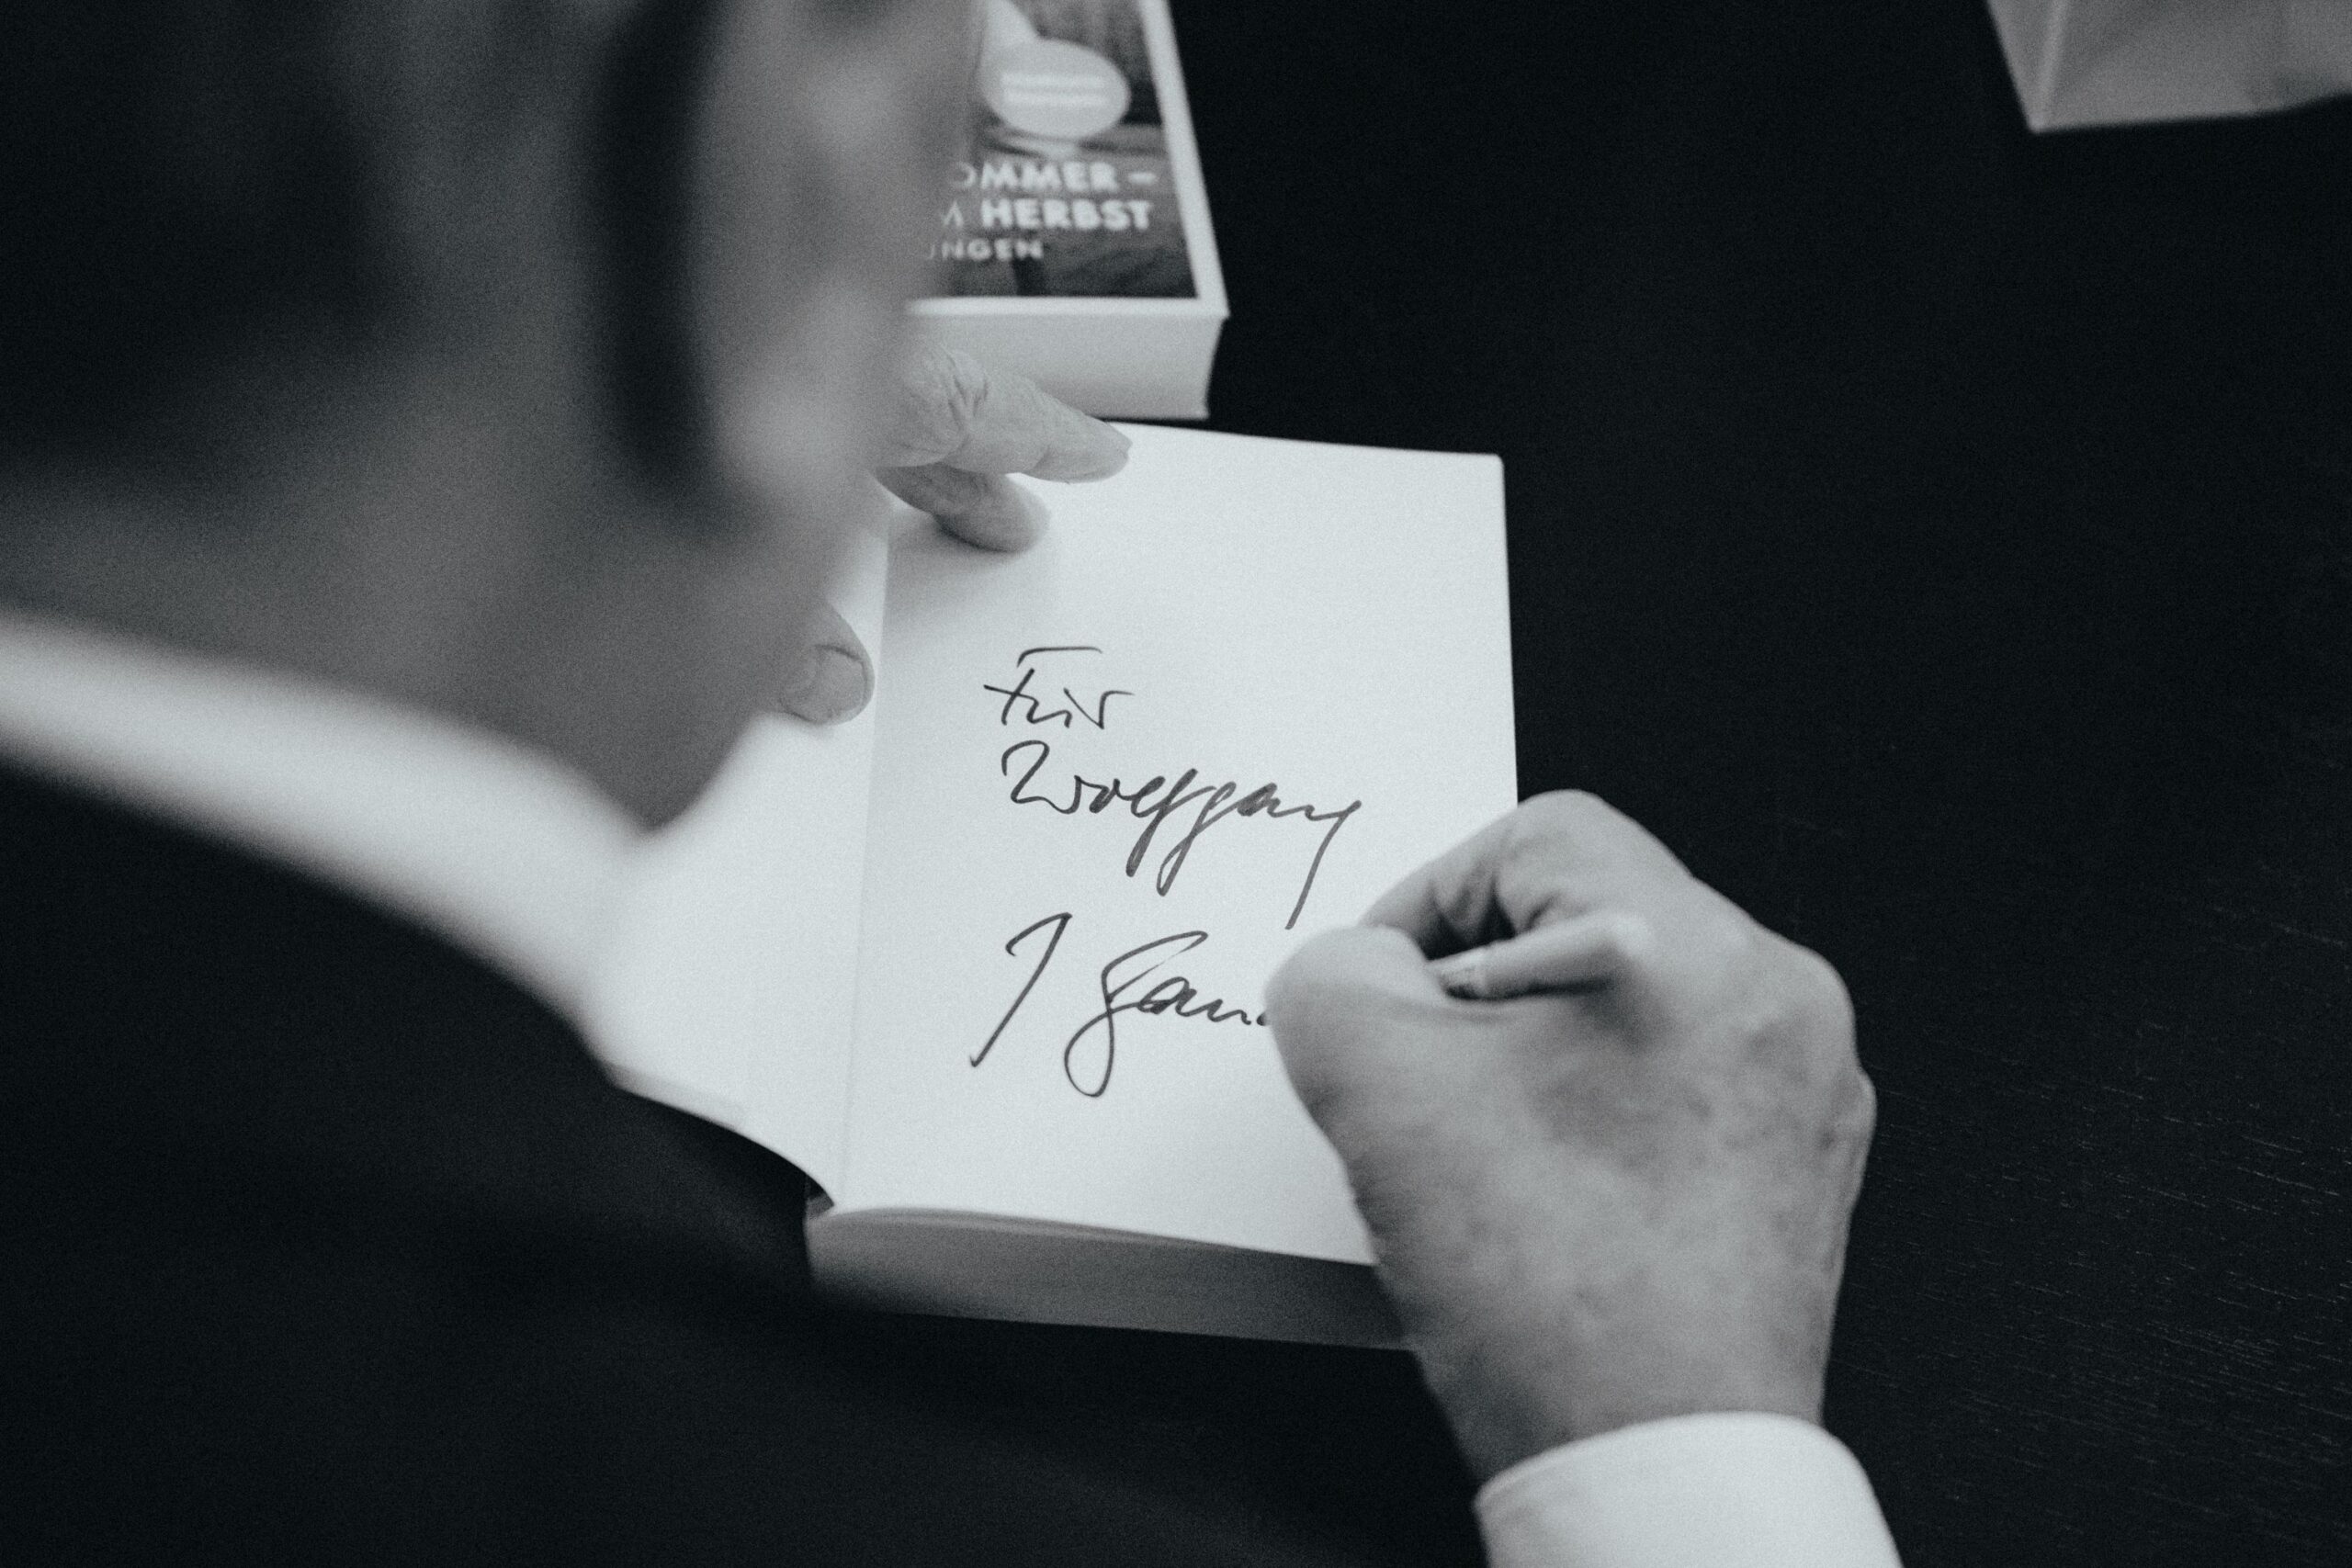 OMMER –
M HERBST
UNGEN
Für
Wolfgang
J Gau